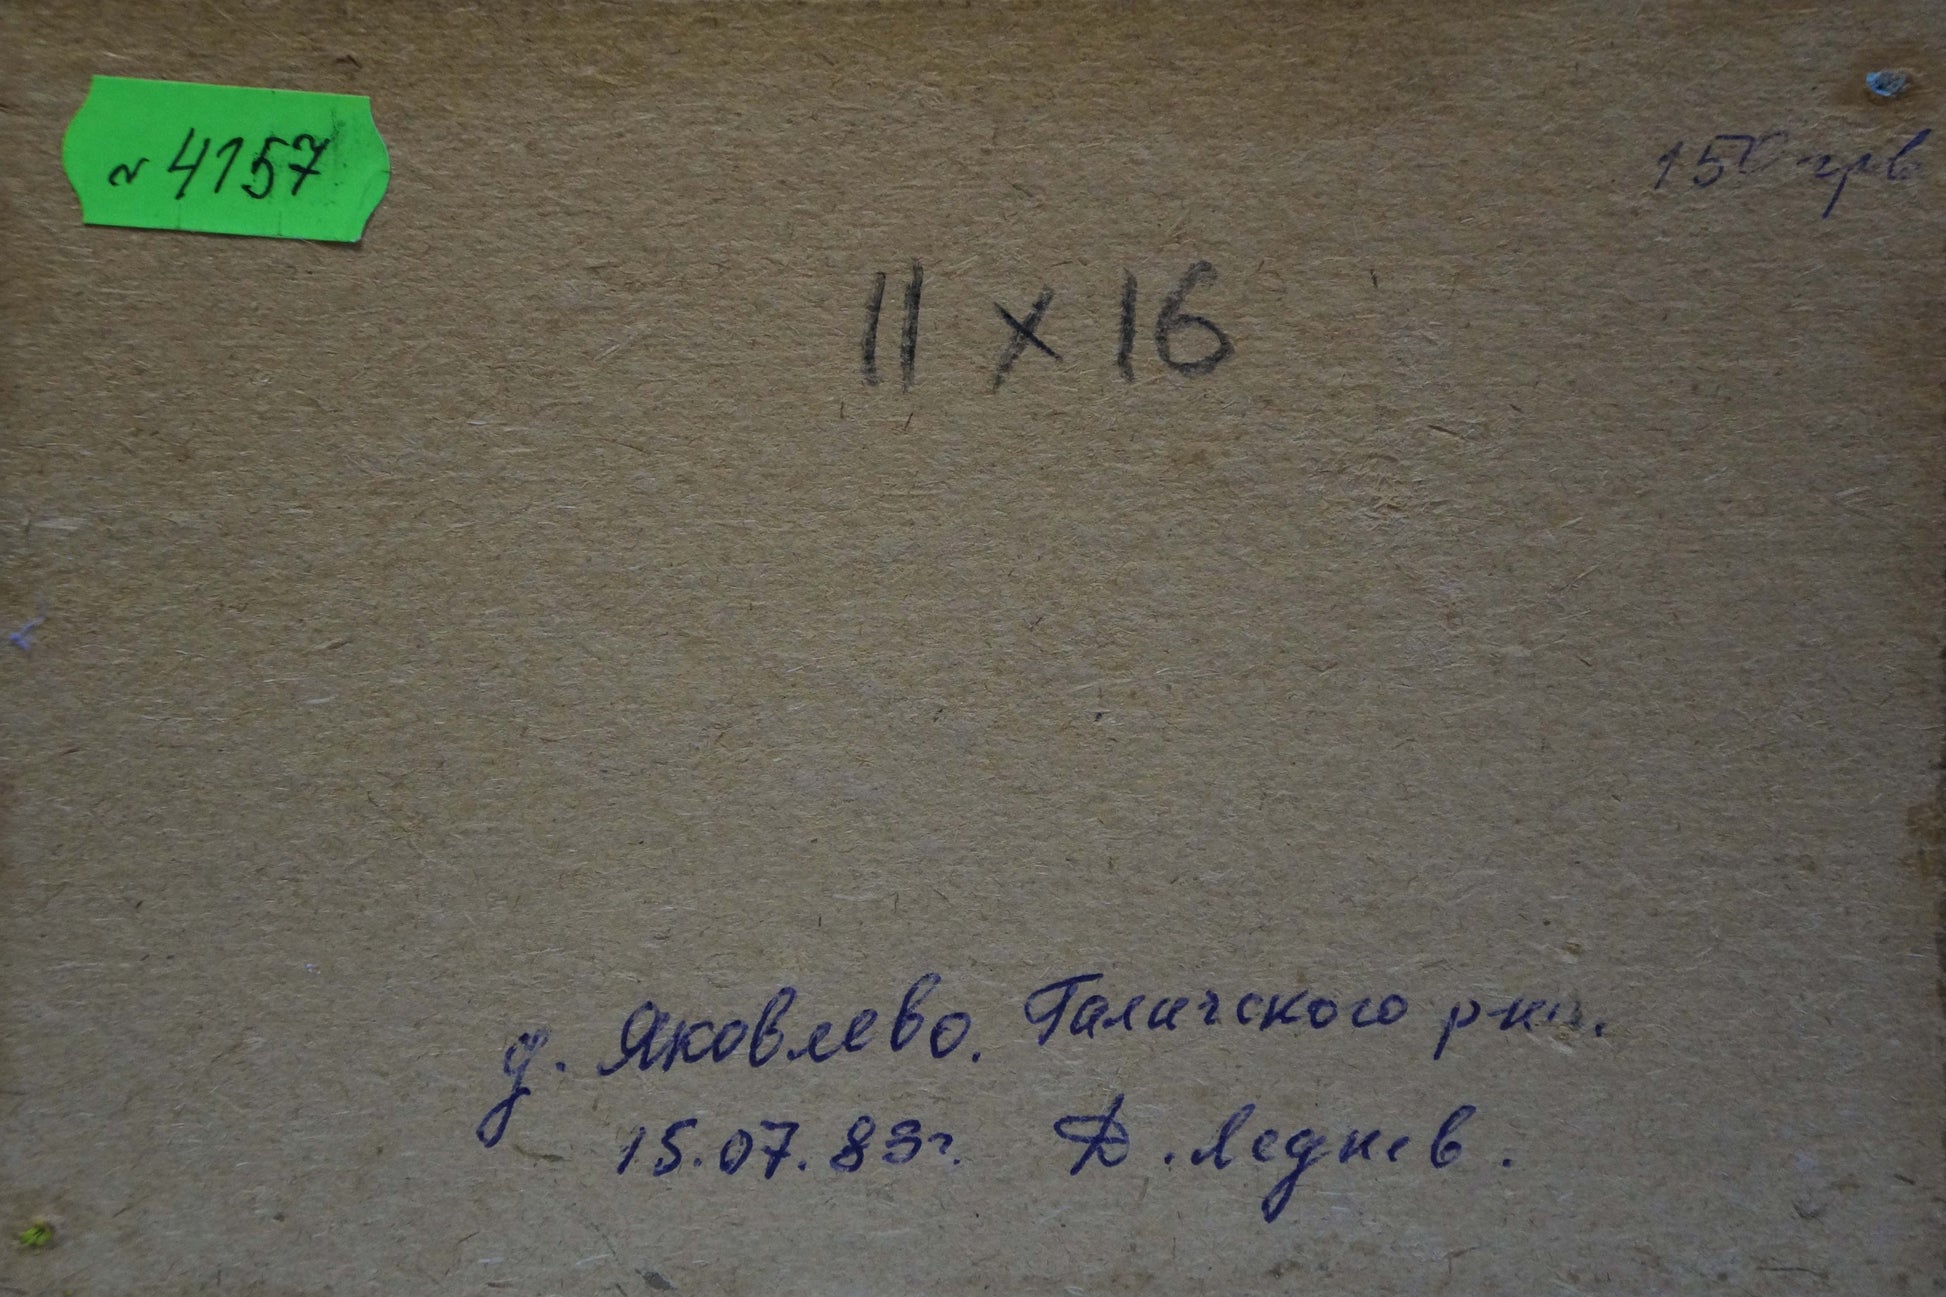 № 4157
150 грв
11 x 16
д. Яковлево. Галичского р-на.
15.07.83г. Д. Леднев.